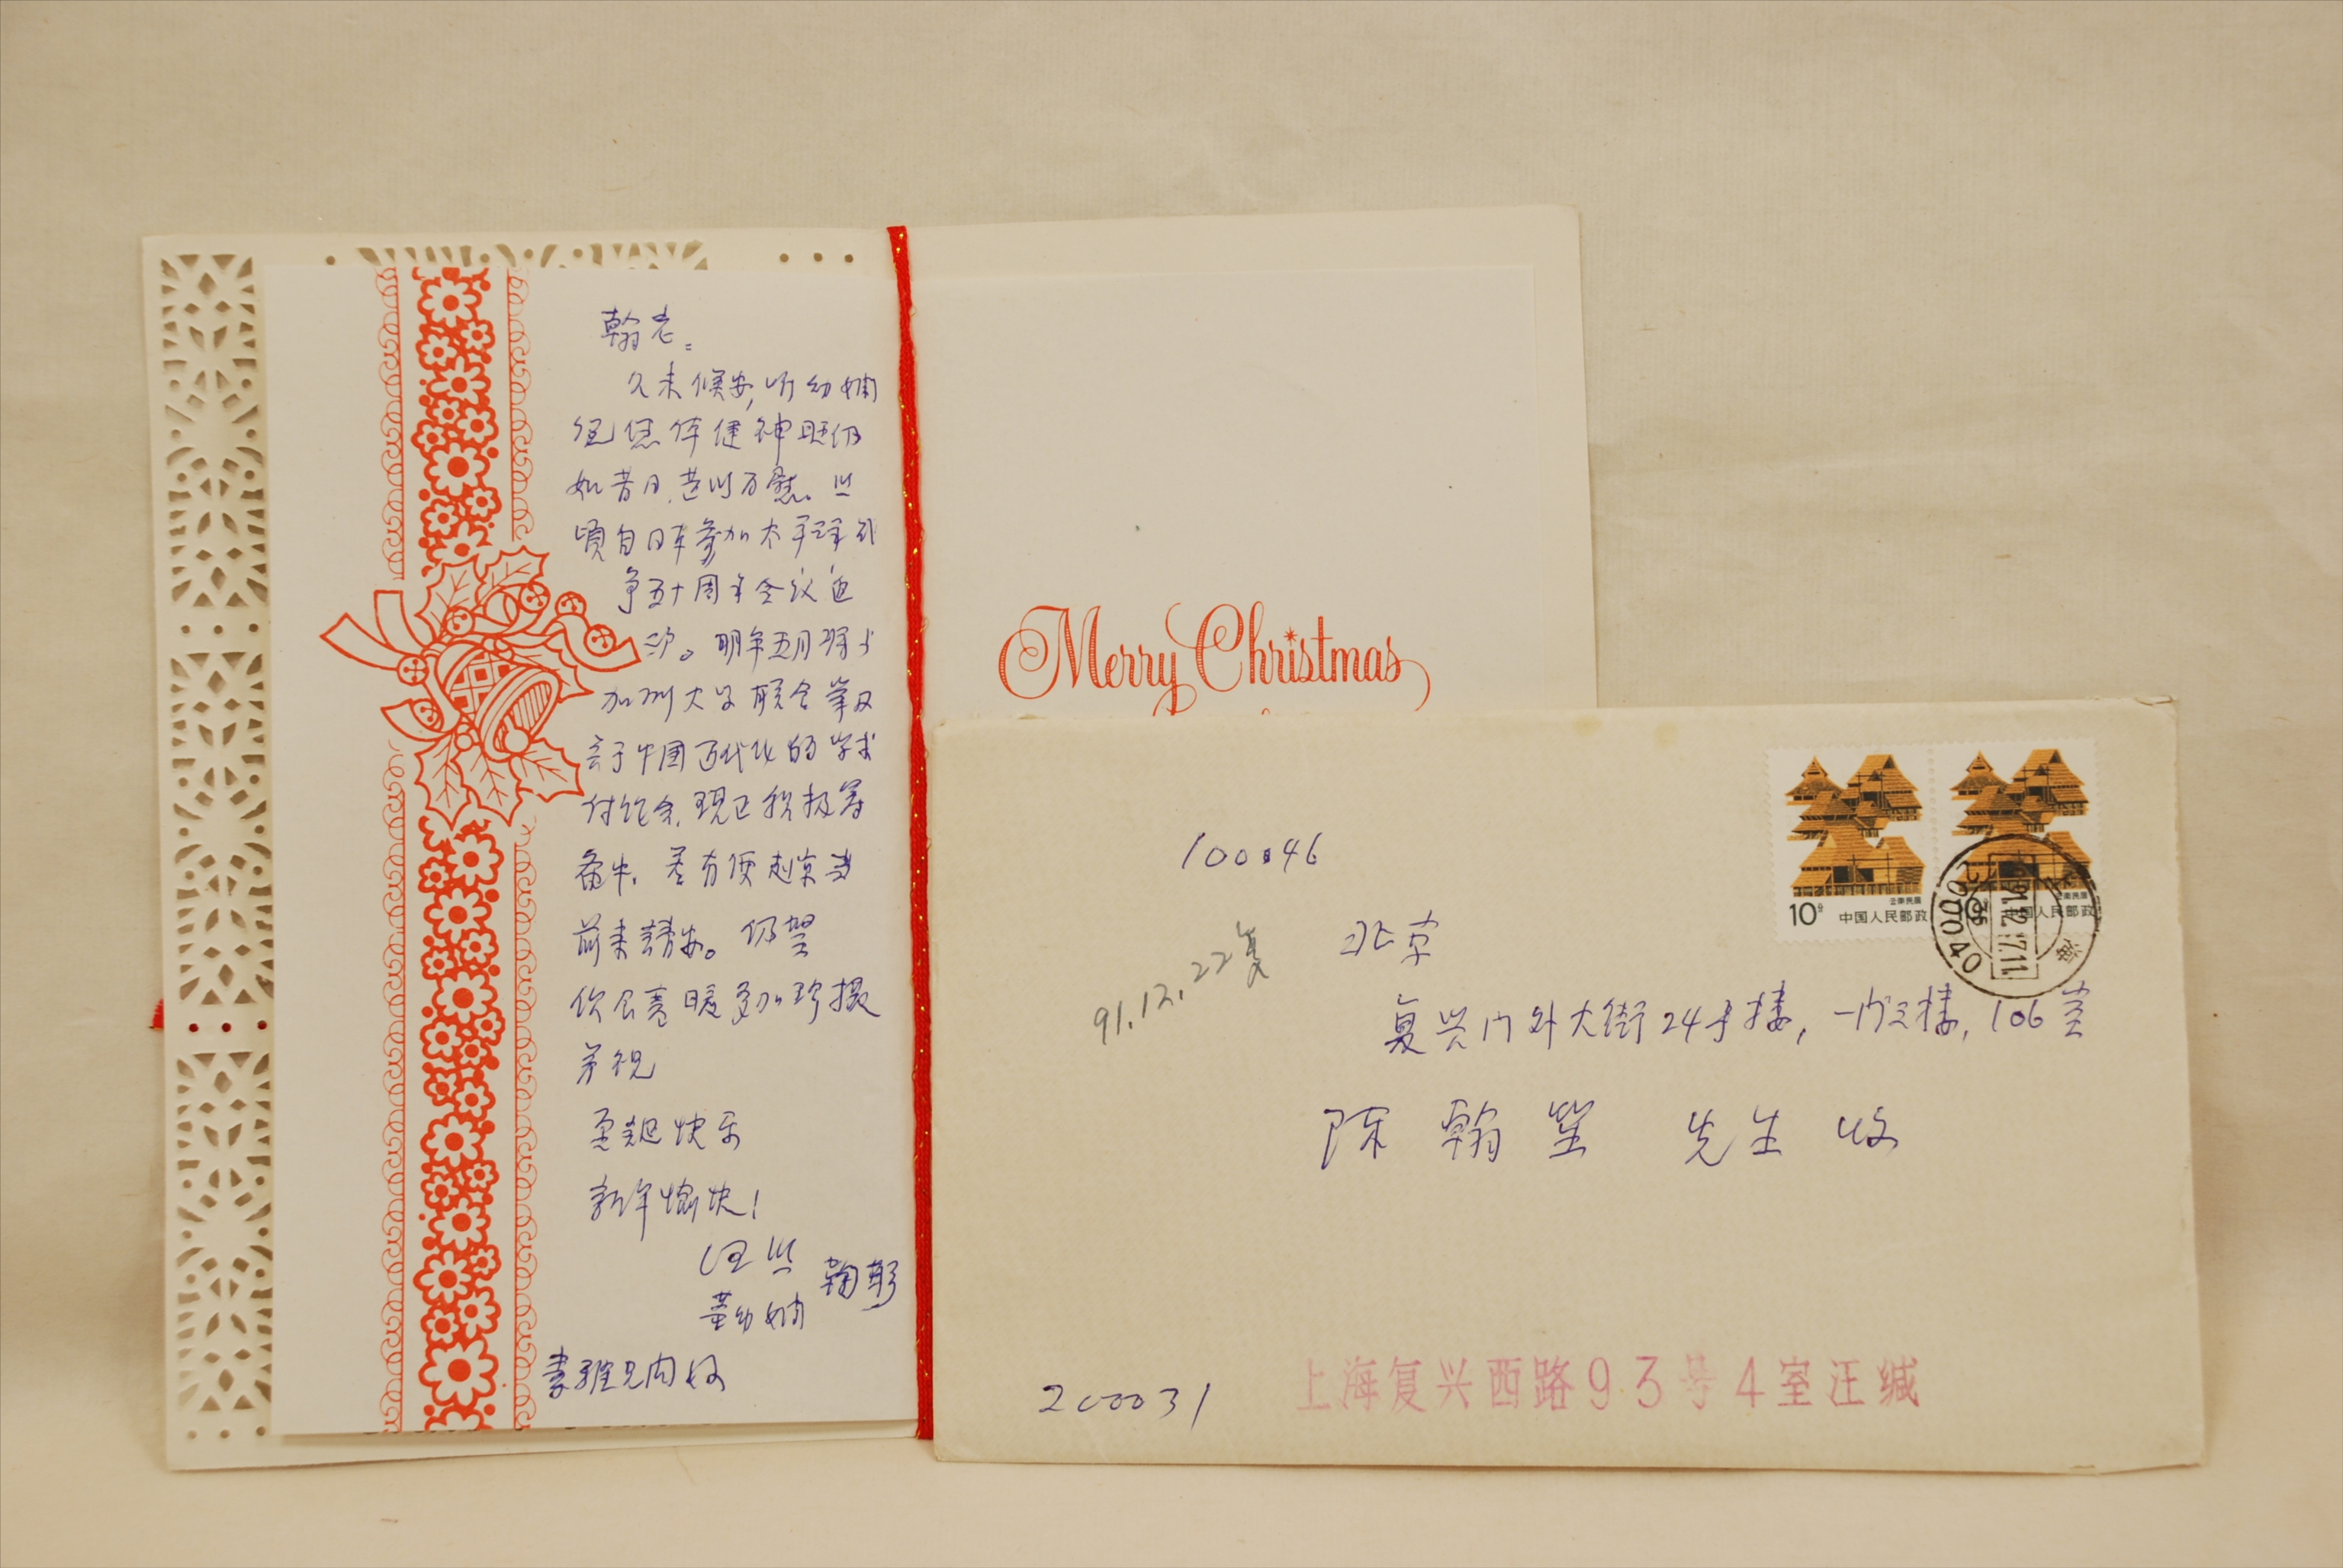 翰老：
久未候安，听幼娴
说您体健神旺仍
如昔日，甚以为慰。熙
顷自日本参加太平洋战
争五十周年会议返
沪。明年五月将与
加州大学联合举办
关于中国近代化的学术
讨论会，现正积极筹
备中。若有便赴京当
前来请安。仍望
饮食寒暖多加珍摄
并祝
圣诞快乐
新年愉快！
汪熙
董幼娴
鞠躬
素雅兄问好
Merry Christmas
10分 中国人民邮政
云南民居
中国人民邮政
云南民居
100046
91.12.22复
北京
复兴门外大街24号楼，一门三楼，106室
陈翰笙 先生 收
200031
上海复兴西路93号4室汪缄